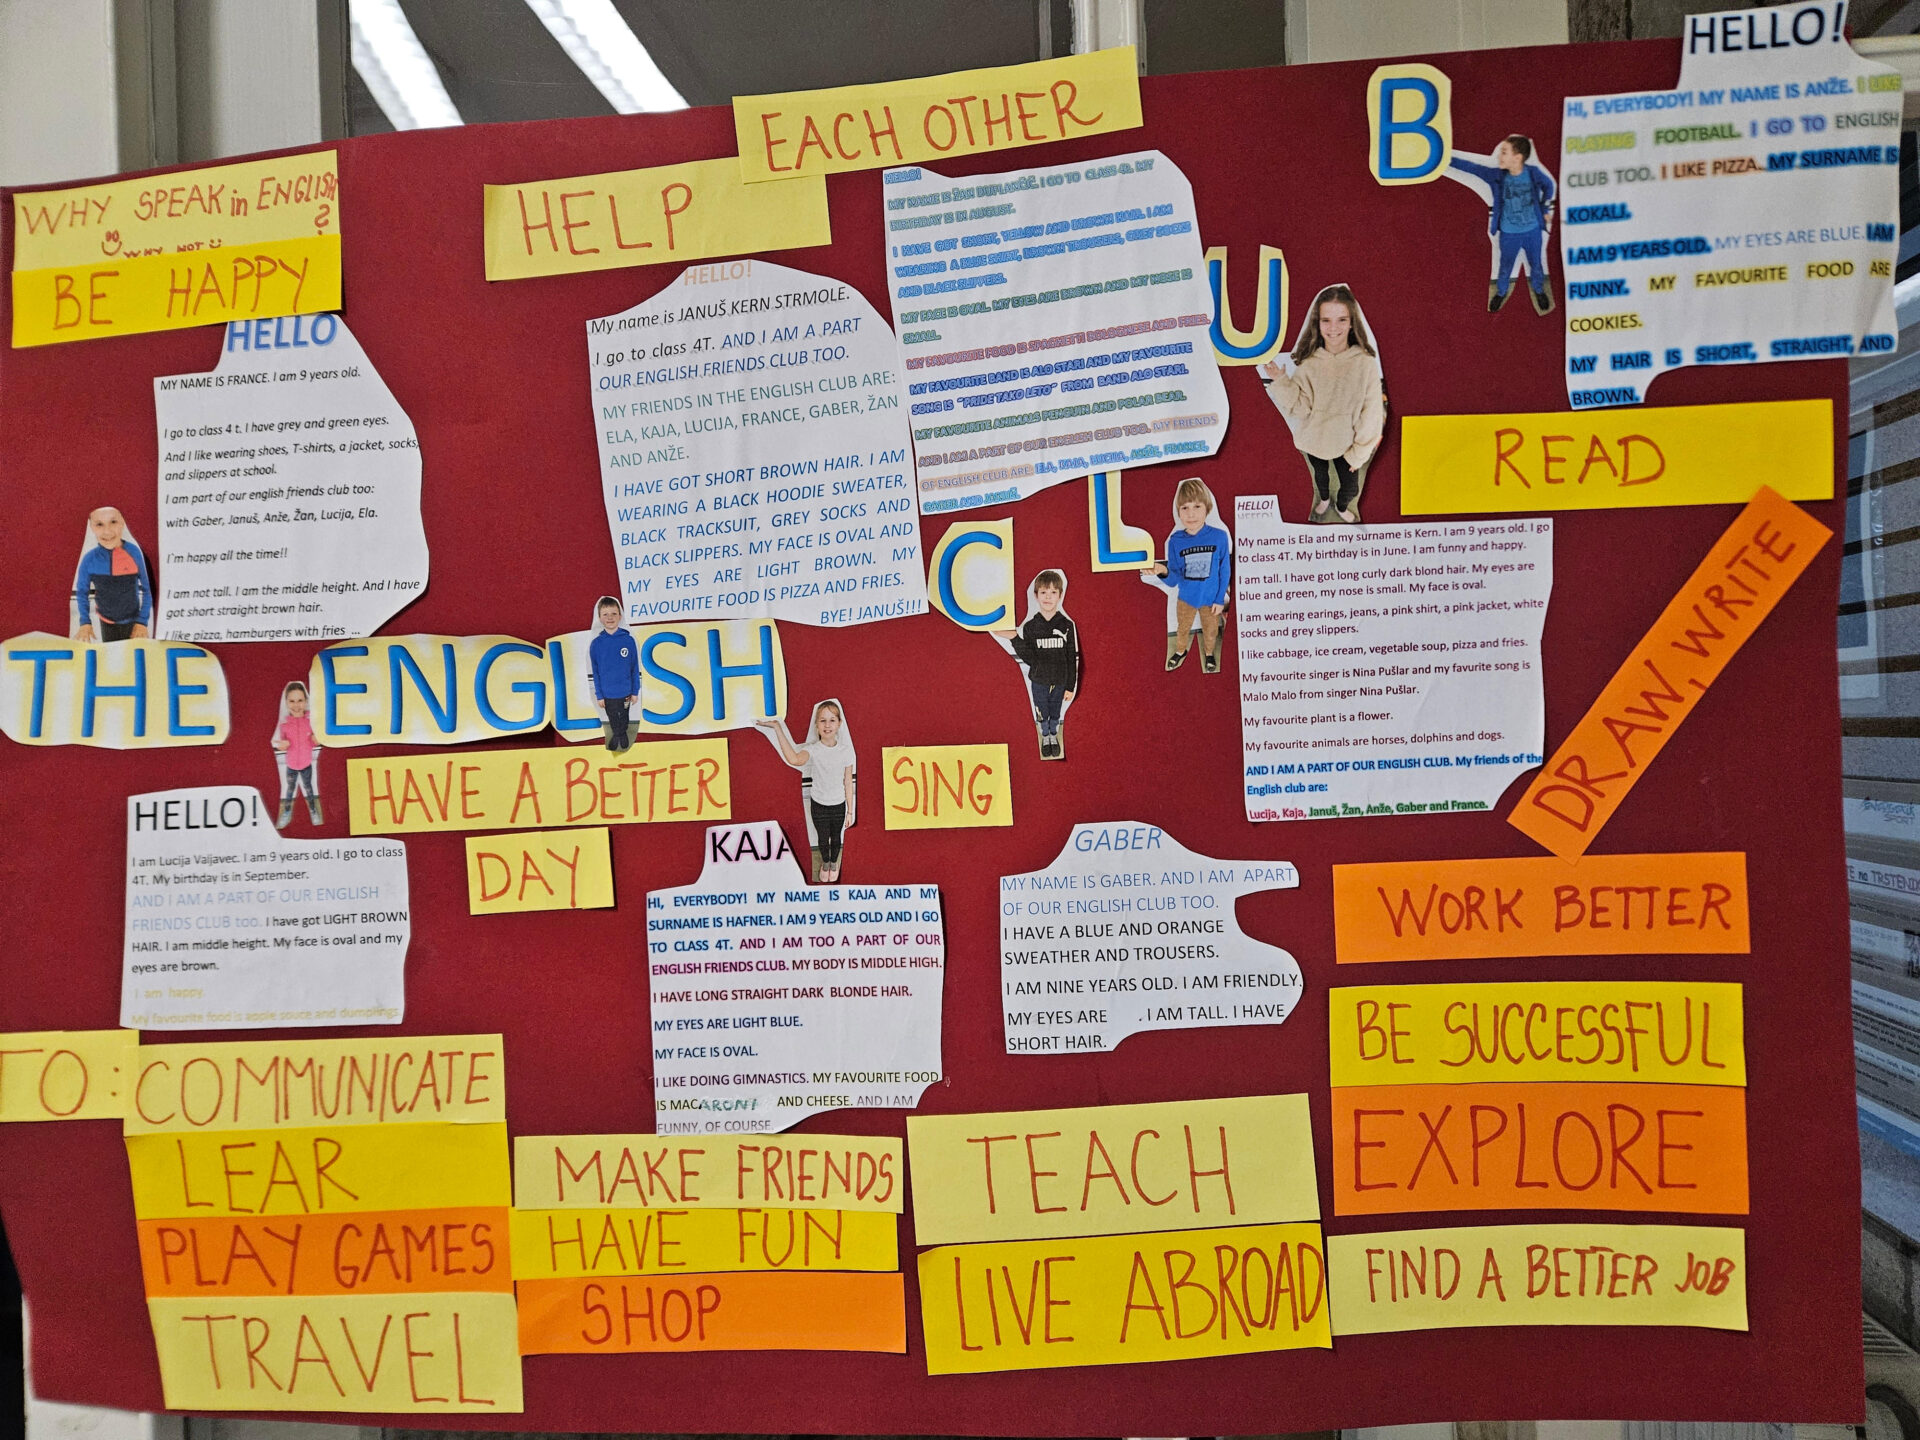 WHY SPEAK in ENGLISH
?
WHY NOT
BE HAPPY
HELP
EACH OTHER
HELLO
MY NAME IS FRANCE. I am 9 years old.
I go to class 4 t. I have grey and green eyes.
And I like wearing shoes, T-shirts, a jacket, socks,
and slippers at school.
I am part of our english friends club too:
with Gaber, Januš, Anže, Žan, Lucija, Ela.
I`m happy all the time!!
I am not tall. I am the middle height. And I have
got short straight brown hair.
I like pizza, hamburgers with fries ...
HELLO!
My name is JANUŠ KERN STRMOLE.
I go to class 4T. AND I AM A PART
OUR ENGLISH FRIENDS CLUB TOO.
MY FRIENDS IN THE ENGLISH CLUB ARE:
ELA, KAJA, LUCIJA, FRANCE, GABER, ŽAN
AND ANŽE.
I HAVE GOT SHORT BROWN HAIR. I AM
WEARING A BLACK HOODIE SWEATER,
BLACK TRACKSUIT, GREY SOCKS AND
BLACK SLIPPERS. MY FACE IS OVAL AND
MY EYES ARE LIGHT BROWN. MY
FAVOURITE FOOD IS PIZZA AND FRIES.
BYE! JANUŠ!!!
HELLO!
MY NAME IS ŽAN I GO TO CLASS 4T. MY
BIRTHDAY IS IN AUGUST.
I HAVE GOT SHORT, YELLOW AND BROWN HAIR. I AM
WEARING A BLUE SHIRT, BROWN TROUSERS, GREY SOCKS
AND BLACK SLIPPERS.
MY FACE IS OVAL. MY EYES ARE BROWN AND MY NOSE IS
SMALL.
MY FAVOURITE FOOD IS SPAGHETTI BOLOGNESE AND FRIES.
MY FAVOURITE BAND IS ALO STARI AND MY FAVOURITE
SONG IS "PRIDE TAKO LETO" FROM BAND ALO STARI.
MY FAVOURITE ANIMALS PENGUIN AND POLAR BEAR.
AND I AM A PART OF OUR ENGLISH CLUB TOO. MY FRIENDS
OF ENGLISH CLUB ARE: ELA, KAJA, LUCIJA, ANŽE, FRANCE,
GABER AND JANUŠ.
HELLO!
HI, EVERYBODY! MY NAME IS ANŽE. I LIKE
PLAYING FOOTBALL. I GO TO ENGLISH
CLUB TOO. I LIKE PIZZA. MY SURNAME IS
KOKALJ.
I AM 9 YEARS OLD. MY EYES ARE BLUE. I AM
FUNNY. MY FAVOURITE FOOD ARE
COOKIES.
MY HAIR IS SHORT, STRAIGHT, AND
BROWN.
READ
DRAW, WRITE
THE ENGLISH CLUB
AUTHENTIC
PUMA
HELLO!
HELLO!
My name is Ela and my surname is Kern. I am 9 years old. I go
to class 4T. My birthday is in June. I am funny and happy.
I am tall. I have got long curly dark blond hair. My eyes are
blue and green, my nose is small. My face is oval.
I am wearing earings, jeans, a pink shirt, a pink jacket, white
socks and grey slippers.
I like cabbage, ice cream, vegetable soup, pizza and fries.
My favourite singer is Nina Pušlar and my favurite song is
Malo Malo from singer Nina Pušlar.
My favourite plant is a flower.
My favourite animals are horses, dolphins and dogs.
AND I AM A PART OF OUR ENGLISH CLUB. My friends of the
English club are:
Lucija, Kaja, Januš, Žan, Anže, Gaber and France.
HAVE A BETTER
DAY
SING
HELLO!
I am Lucija Valjavec. I am 9 years old. I go to class
4T. My birthday is in September.
AND I AM A PART OF OUR ENGLISH
FRIENDS CLUB too. I have got LIGHT BROWN
HAIR. I am middle height. My face is oval and my
eyes are brown.
I am happy.
My favourite food is apple souce and dumplings.
KAJA
HI, EVERYBODY! MY NAME IS KAJA AND MY
SURNAME IS HAFNER. I AM 9 YEARS OLD AND I GO
TO CLASS 4T. AND I AM TOO A PART OF OUR
ENGLISH FRIENDS CLUB. MY BODY IS MIDDLE HIGH.
I HAVE LONG STRAIGHT DARK BLONDE HAIR.
MY EYES ARE LIGHT BLUE.
MY FACE IS OVAL.
I LIKE DOING GIMNASTICS. MY FAVOURITE FOOD
IS MACARONI AND CHEESE. AND I AM
FUNNY, OF COURSE.
GABER
MY NAME IS GABER. AND I AM APART
OF OUR ENGLISH CLUB TOO.
I HAVE A BLUE AND ORANGE
SWEATHER AND TROUSERS.
I AM NINE YEARS OLD. I AM FRIENDLY.
MY EYES ARE . I AM TALL. I HAVE
SHORT HAIR.
WORK BETTER
BE SUCCESSFUL
EXPLORE
FIND A BETTER JOB
TO: COMMUNICATE
LEAR
PLAY GAMES
TRAVEL
MAKE FRIENDS
HAVE FUN
SHOP
TEACH
LIVE ABROAD